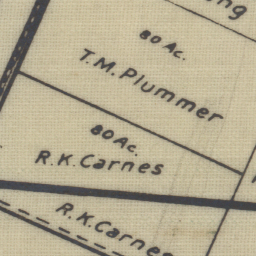 80 Ac.
T.M. Plummer
80 Ac.
R.K. Carnes
R.K. Carnes